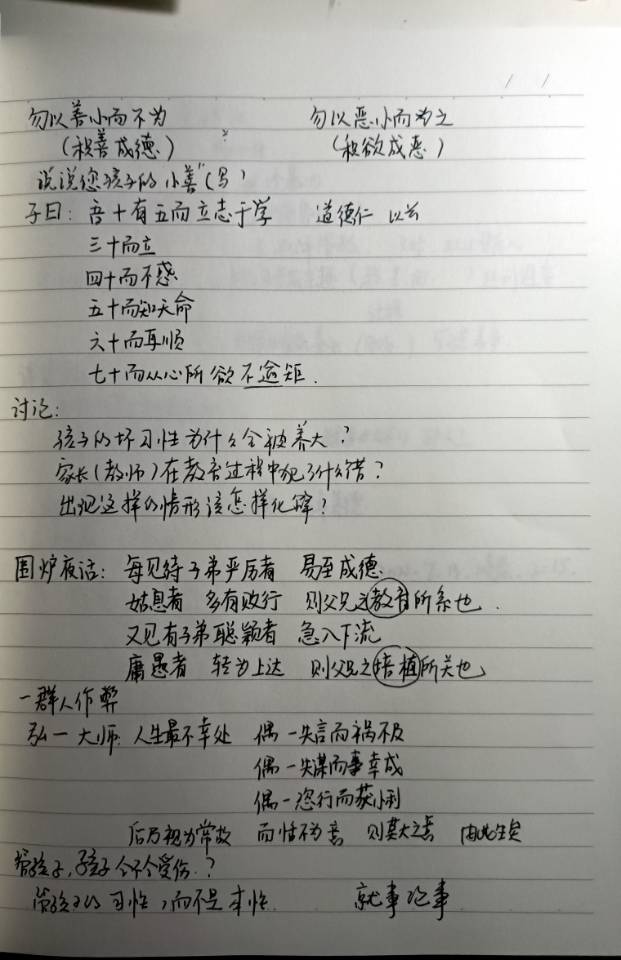 勿以善小而不为 勿以恶小而为之
(积善成德) (积欲成恶)
说说您孩子的"小善"(写)
子曰: 吾十有五而立志于学 道德仁
三十而立
四十而不惑
五十而知天命
六十而耳顺
七十而从心所欲不逾矩.
讨论:
孩子的坏习性为什么会被养大?
家长(教师)在教育过程中犯了什么错?
出现这样的情形该怎样化解?
围炉夜话: 每见待子弟严厉者 易至成德
姑息者 多有败行 则父兄之教育所系也.
又见有子弟聪颖者 急入下流
庸愚者 转为上达 则父兄之培植所关也
一群人作弊
弘一大师: 人生最不幸处 偶一失言而祸不及
偶一失谋而事幸成
偶一恣行而获小利
后乃视为常故 而恬不为意 则莫大之害 由此生矣
管孩子,孩子会不会受伤.?
管孩子的习性,而不是本性. 就事论事